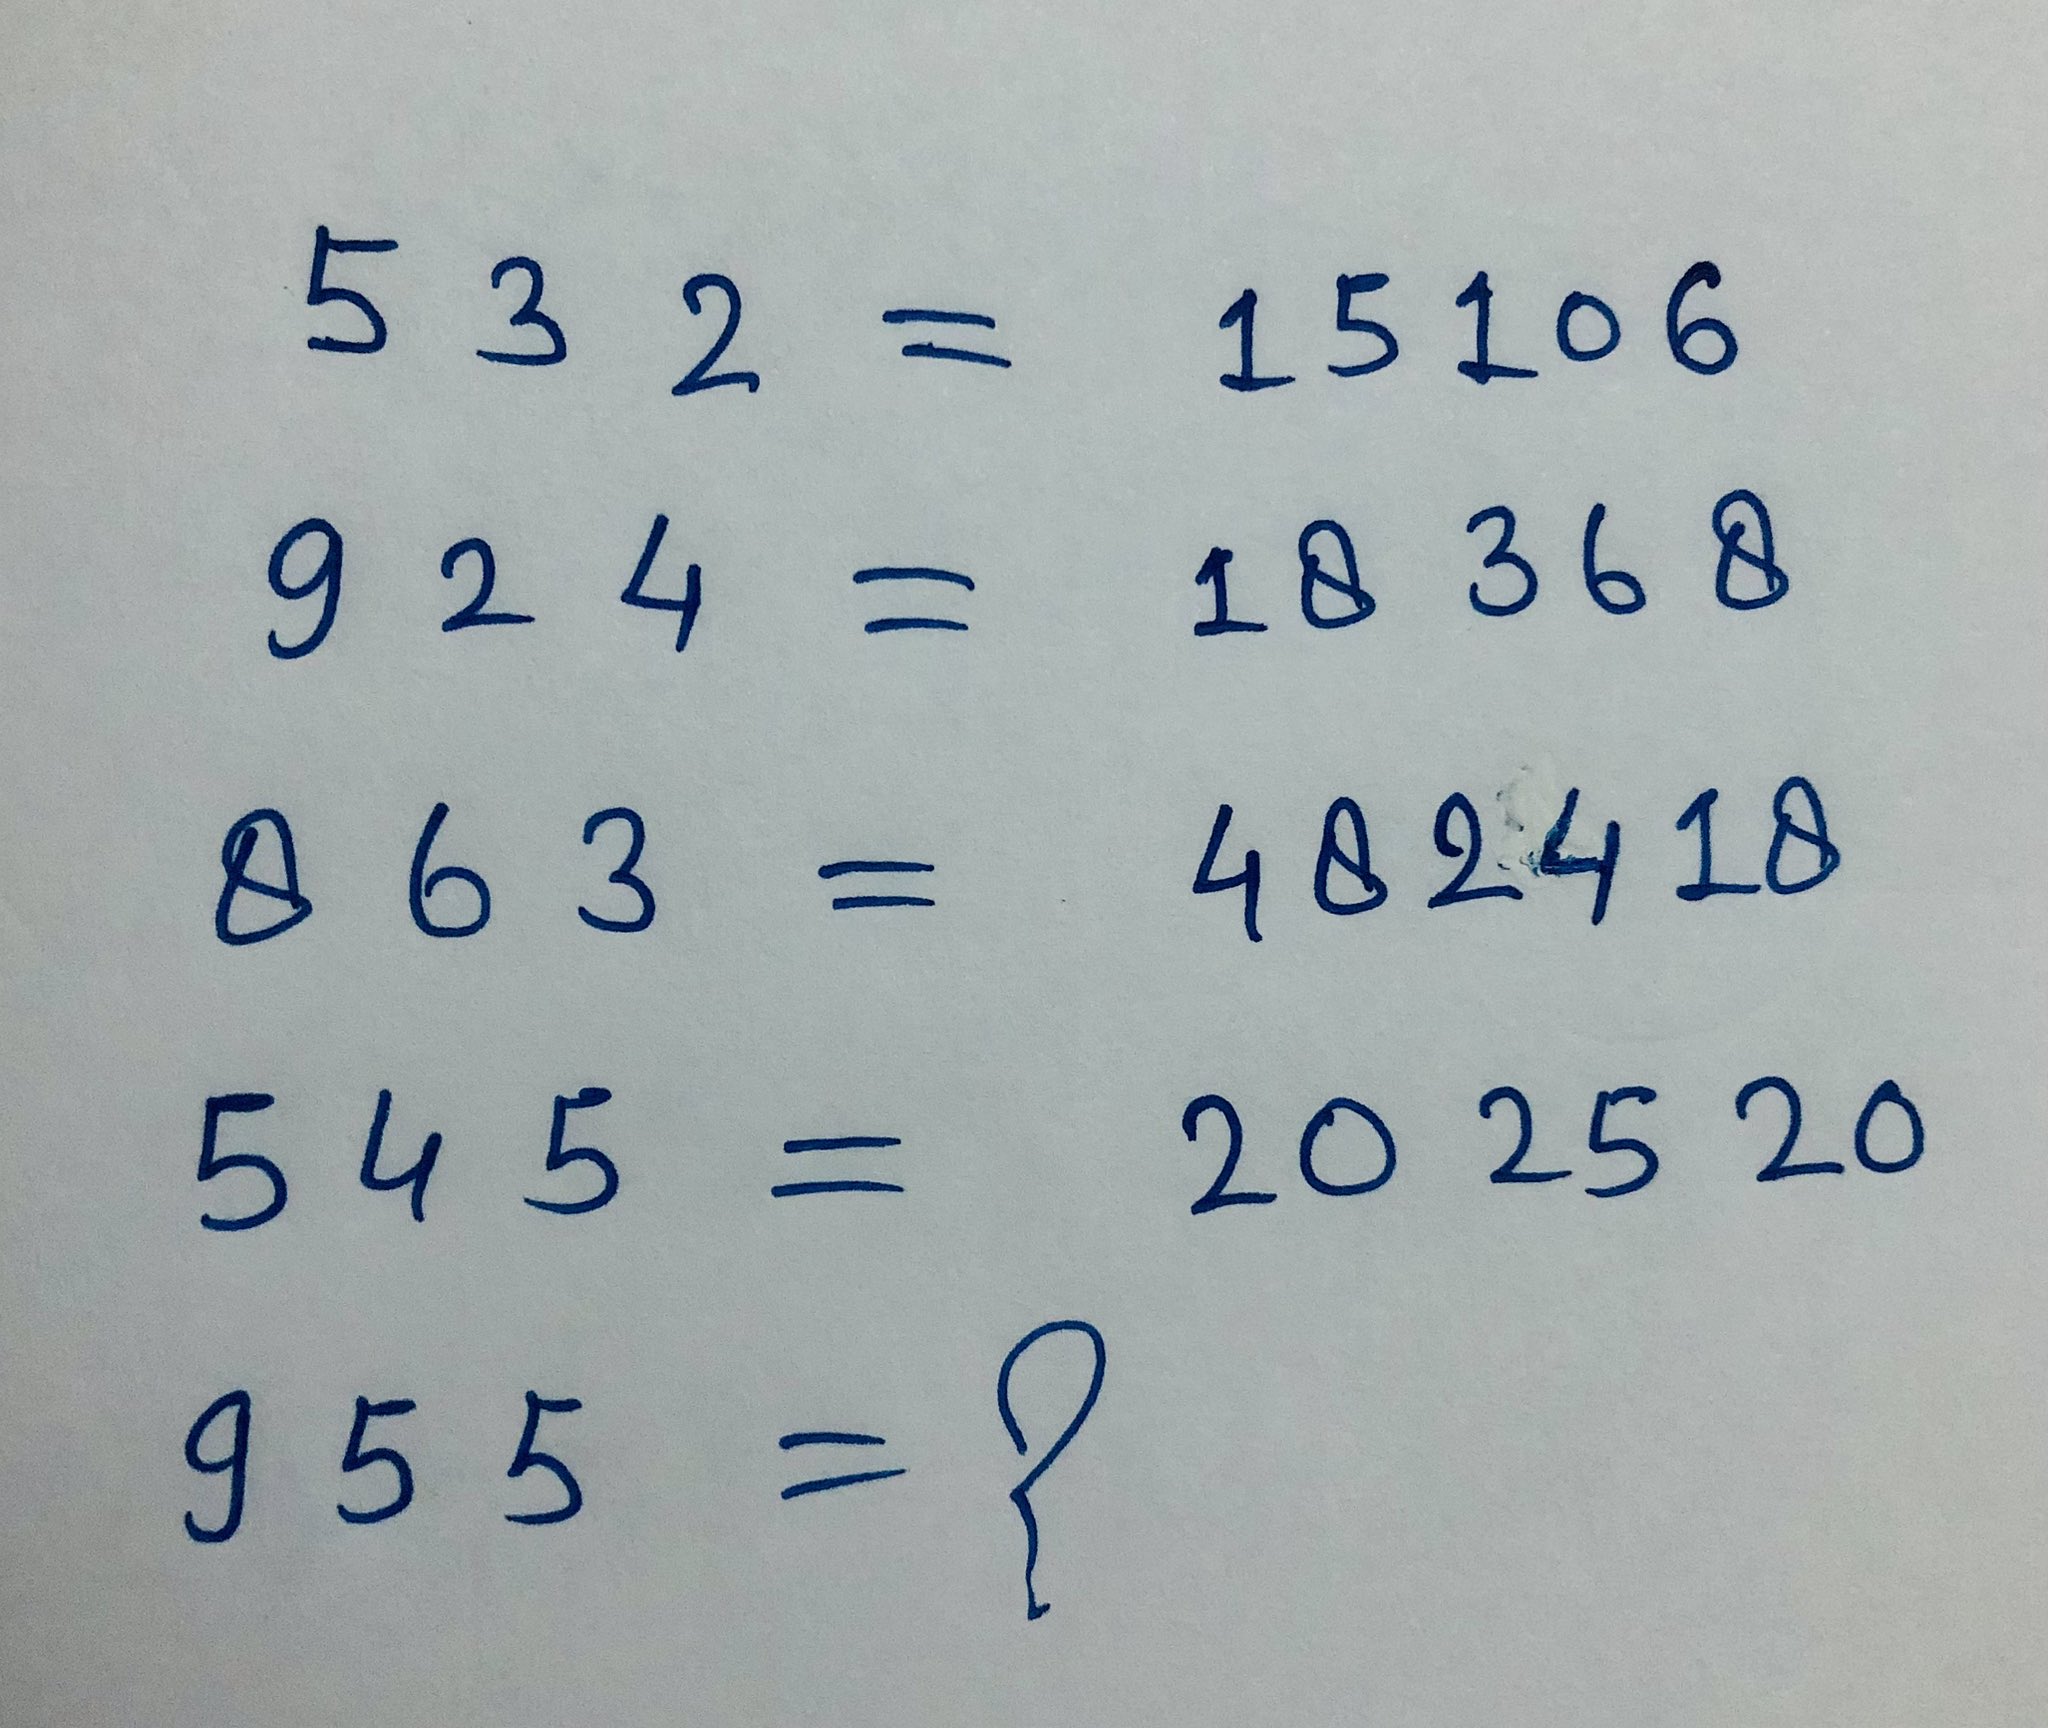 5 3 2 = 15106
9 2 4 = 18 36 8
8 6 3 = 482418
5 4 5 = 20 25 20
9 5 5 = ?